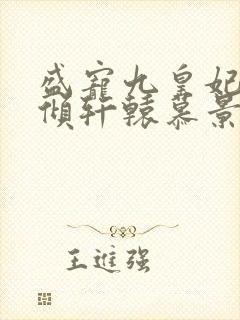 盛宠九皇妃
倾轩辕慕景
王进强